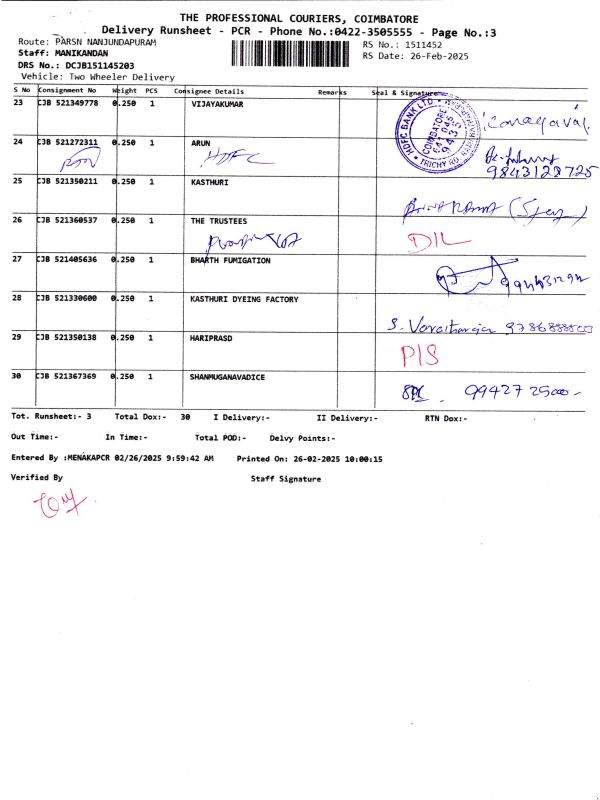 THE PROFESSIONAL COURIERS, COIMBATORE
Delivery Runsheet - PCR - Phone No.:0422-3505555 - Page No.:3
Route: PARSN NANJUNDAPURAM
RS No.: 1511452
Staff: MANIKANDAN
RS Date: 26-Feb-2025
DRS No.: DCJB151145203
Vehicle: Two Wheeler Delivery
S No Consignment No Weight PCS Consignee Details Remarks Seal & Signature
23 CJB 521349778 0.250 1 VIJAYAKUMAR
HDFC BANK LTD. COIMBATORE TRICHY RD.
24 CJB 521272311 0.250 1 ARUN
HDFC
9843123725
25 CJB 521350211 0.250 1 KASTHURI
26 CJB 521360537 0.250 1 THE TRUSTEES
D/L
27 CJB 521405636 0.250 1 BHARTH FUMIGATION
28 CJB 521330600 0.250 1 KASTHURI DYEING FACTORY
29 CJB 521350138 0.250 1 HARIPRASD
P/S
30 CJB 521367369 0.250 1 SHANMUGANAVADICE
Tot. Runsheet:- 3 Total Dox:- 30 I Delivery:- II Delivery:- RTN Dox:-
Out Time:- In Time:- Total POD:- Delvy Points:-
Entered By :MENAKAPCR 02/26/2025 9:59:42 AM Printed On: 26-02-2025 10:00:15
Verified By Staff Signature